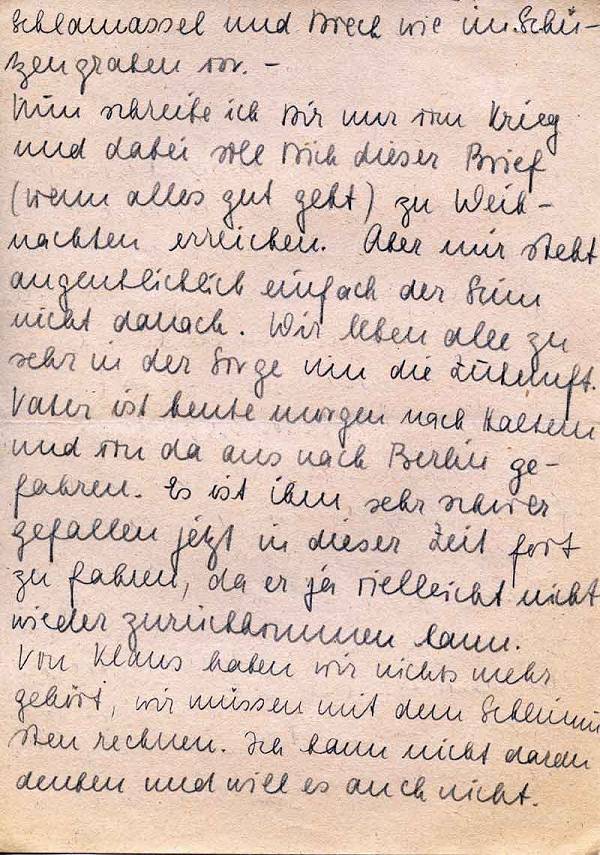 Schlamassel und Dreck wie im Schüt-
zengraben vor. -
Nun schreibe ich Dir nur vom Krieg
und dabei soll Dich dieser Brief
(wenn alles gut geht) zu Weih-
nachten erreichen. Aber mir steht
augenblicklich einfach der Sinn
nicht danach. Wir leben alle zu
sehr in der Sorge um die Zukunft.
Vater ist heute morgen nach Haltern
und von da aus nach Berlin ge-
fahren. Es ist ihm sehr schwer
gefallen jetzt in dieser Zeit fort
zu fahren, da er ja vielleicht nicht
wieder zurückkommen kann.
Von Klaus haben wir nichts mehr
gehört, wir müssen mit dem Schlimm
sten rechnen. Ich kann nicht daran
denken und will es auch nicht.